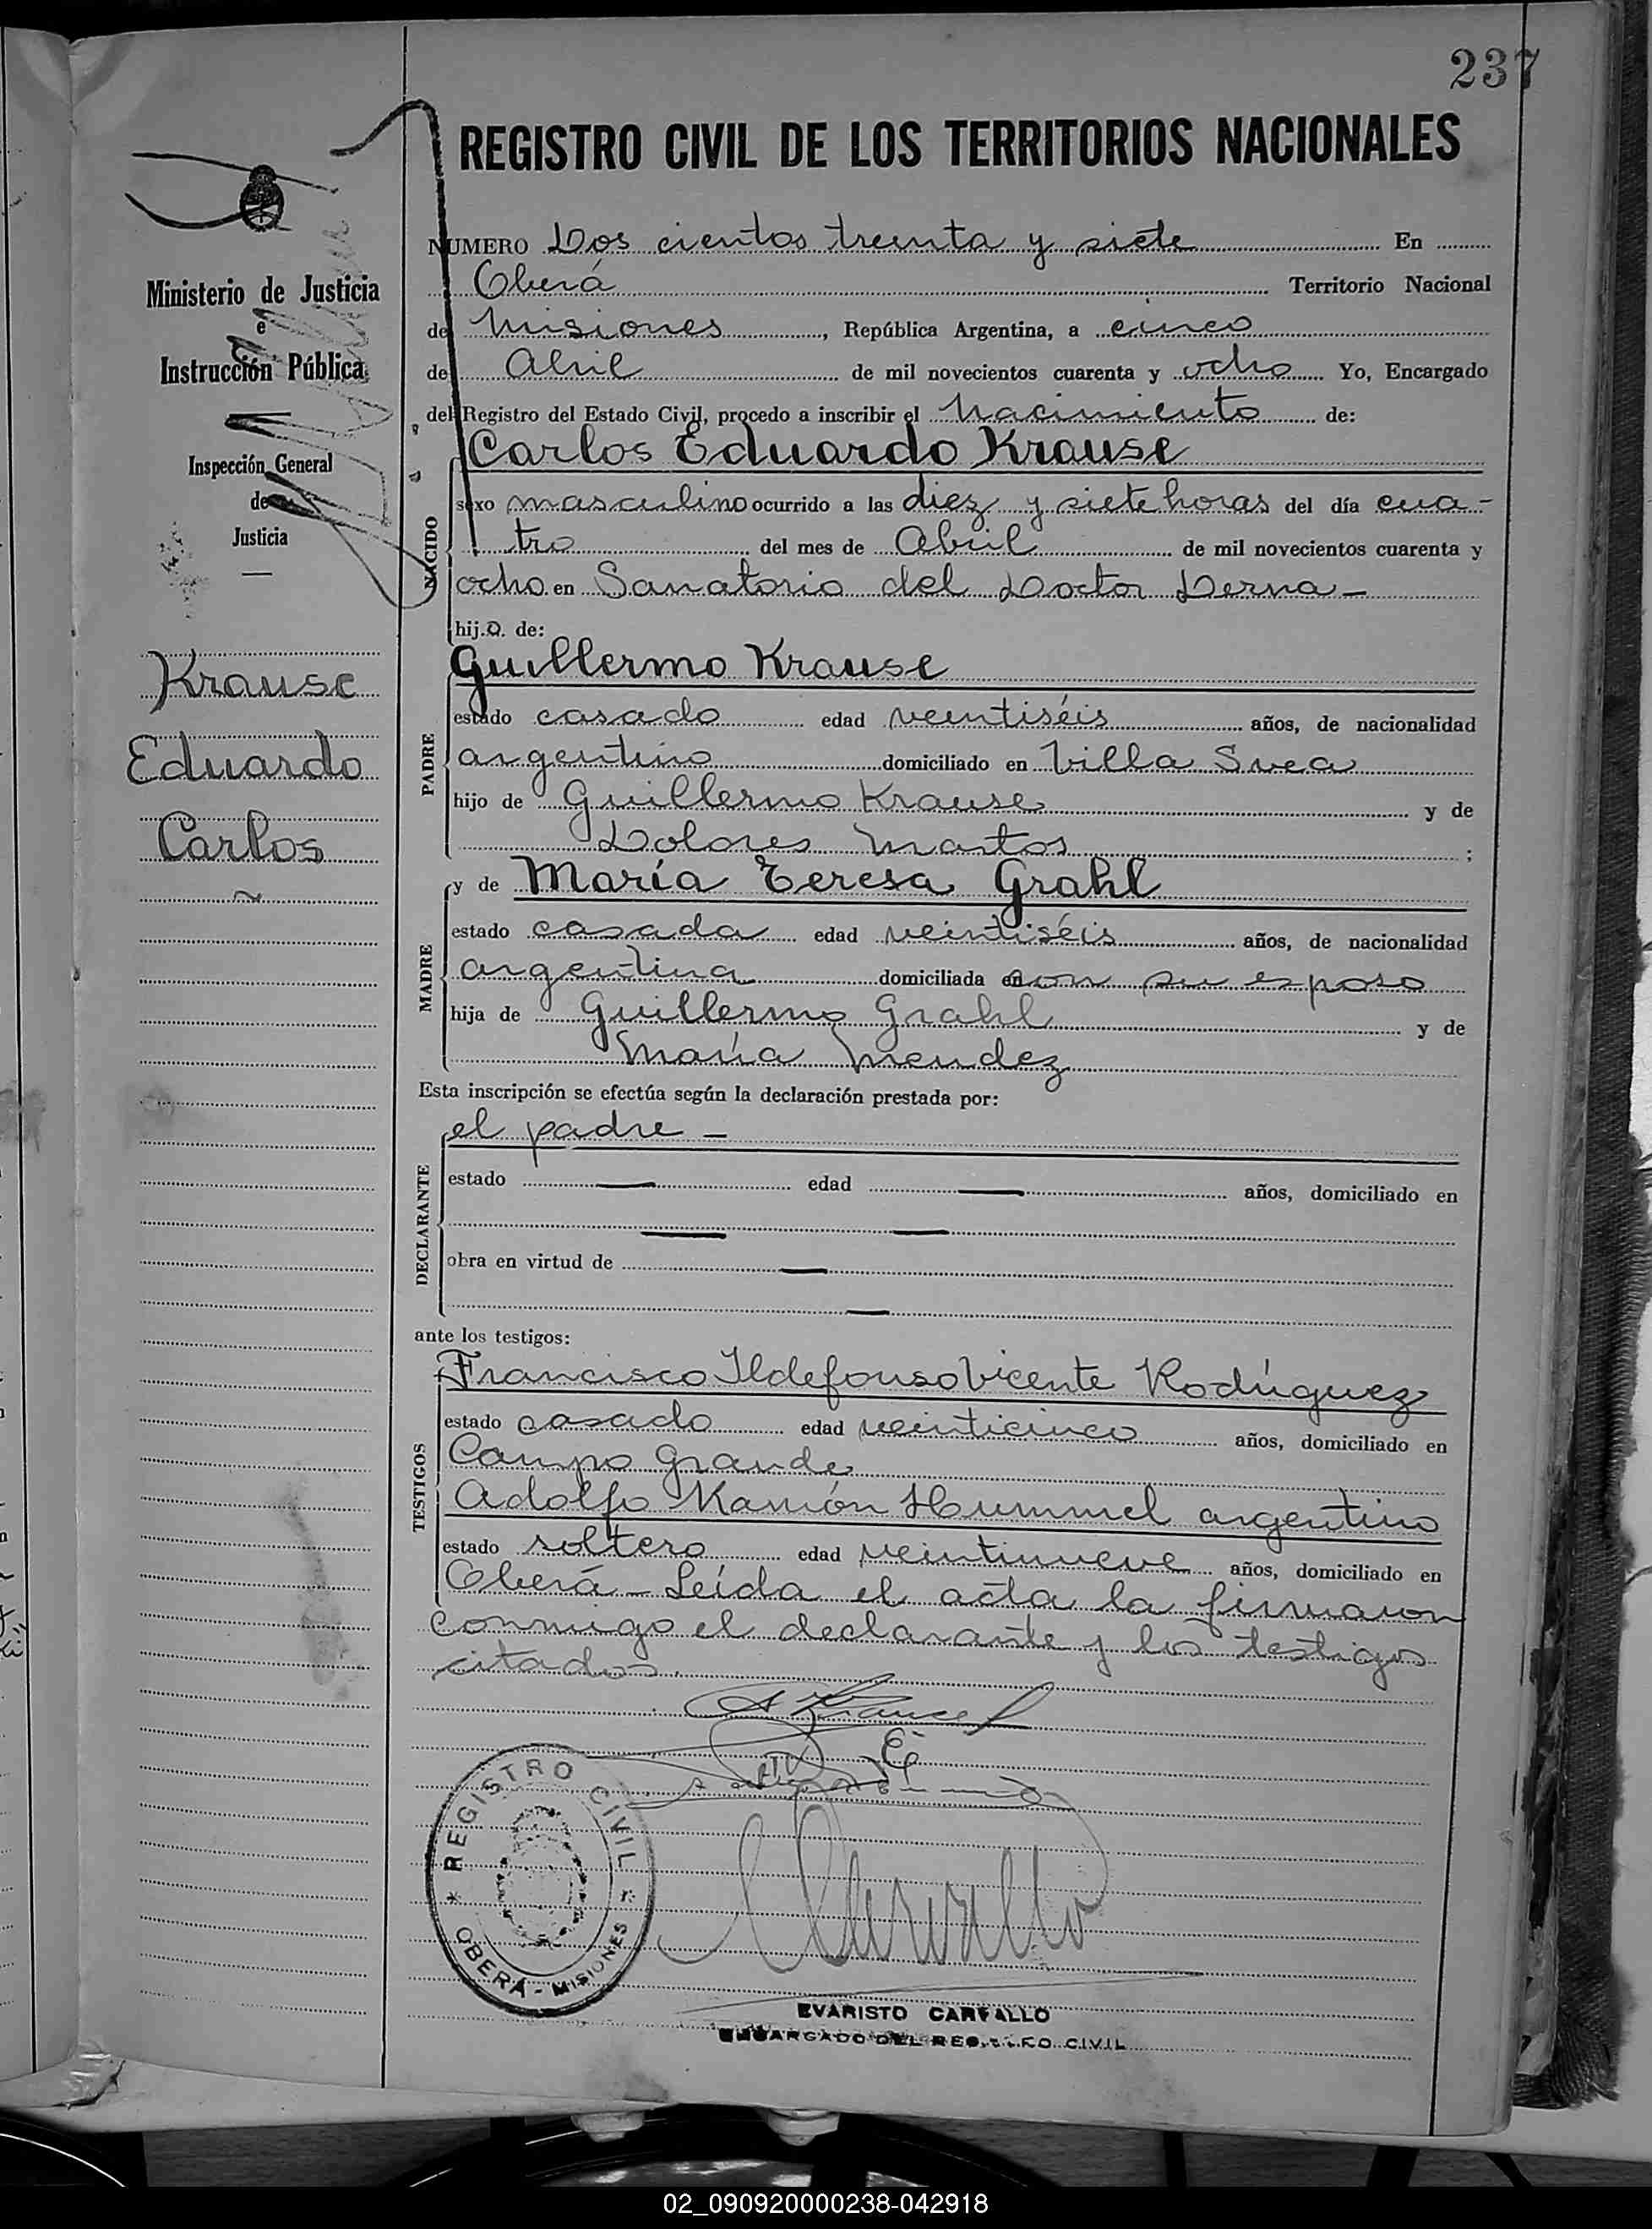 237
REGISTRO CIVIL DE LOS TERRITORIOS NACIONALES
Ministerio de Justicia
e
Instrucción Pública
Inspección General
de
Justicia
Krause
Eduardo
Carlos
NUMERO Dos cientos treinta y siete En
Oberá Territorio Nacional
de Misiones, República Argentina, a cinco
de Abril de mil novecientos cuarenta y ocho Yo, Encargado
del Registro del Estado Civil, procedo a inscribir el Nacimiento de:
Carlos Eduardo Krause
NACIDO
sexo masculino ocurrido a las diez y siete horas del día cua-
tro del mes de Abril de mil novecientos cuarenta y
ocho en Sanatorio del Doctor Derna -
hij.o. de:
PADRE
Guillermo Krause
estado casado edad veintiséis años, de nacionalidad
argentino domiciliado en Villa Svea
hijo de Guillermo Krause y de
Dolores Martos ;
MADRE
y de María Teresa Grahl
estado casada edad veintiséis años, de nacionalidad
argentina domiciliada en con su esposo
hija de Guillermo Grahl y de
María Mendez
Esta inscripción se efectúa según la declaración prestada por:
DECLARANTE
el padre -
estado — edad — años, domiciliado en
— —
obra en virtud de —
—
ante los testigos:
TESTIGOS
Francisco Ildefonso Vicente Rodríguez
estado casado edad veinticinco años, domiciliado en
Campo Grande
Adolfo Ramón Hummel argentino
estado soltero edad veintinueve años, domiciliado en
Oberá - Leída el acta la firmaron
conmigo el declarante y los testigos
citados.
REGISTRO CIVIL
OBERÁ - MISIONES
EVARISTO CARVALLO
ENCARGADO DEL REGISTRO CIVIL
02_090920000238-042918